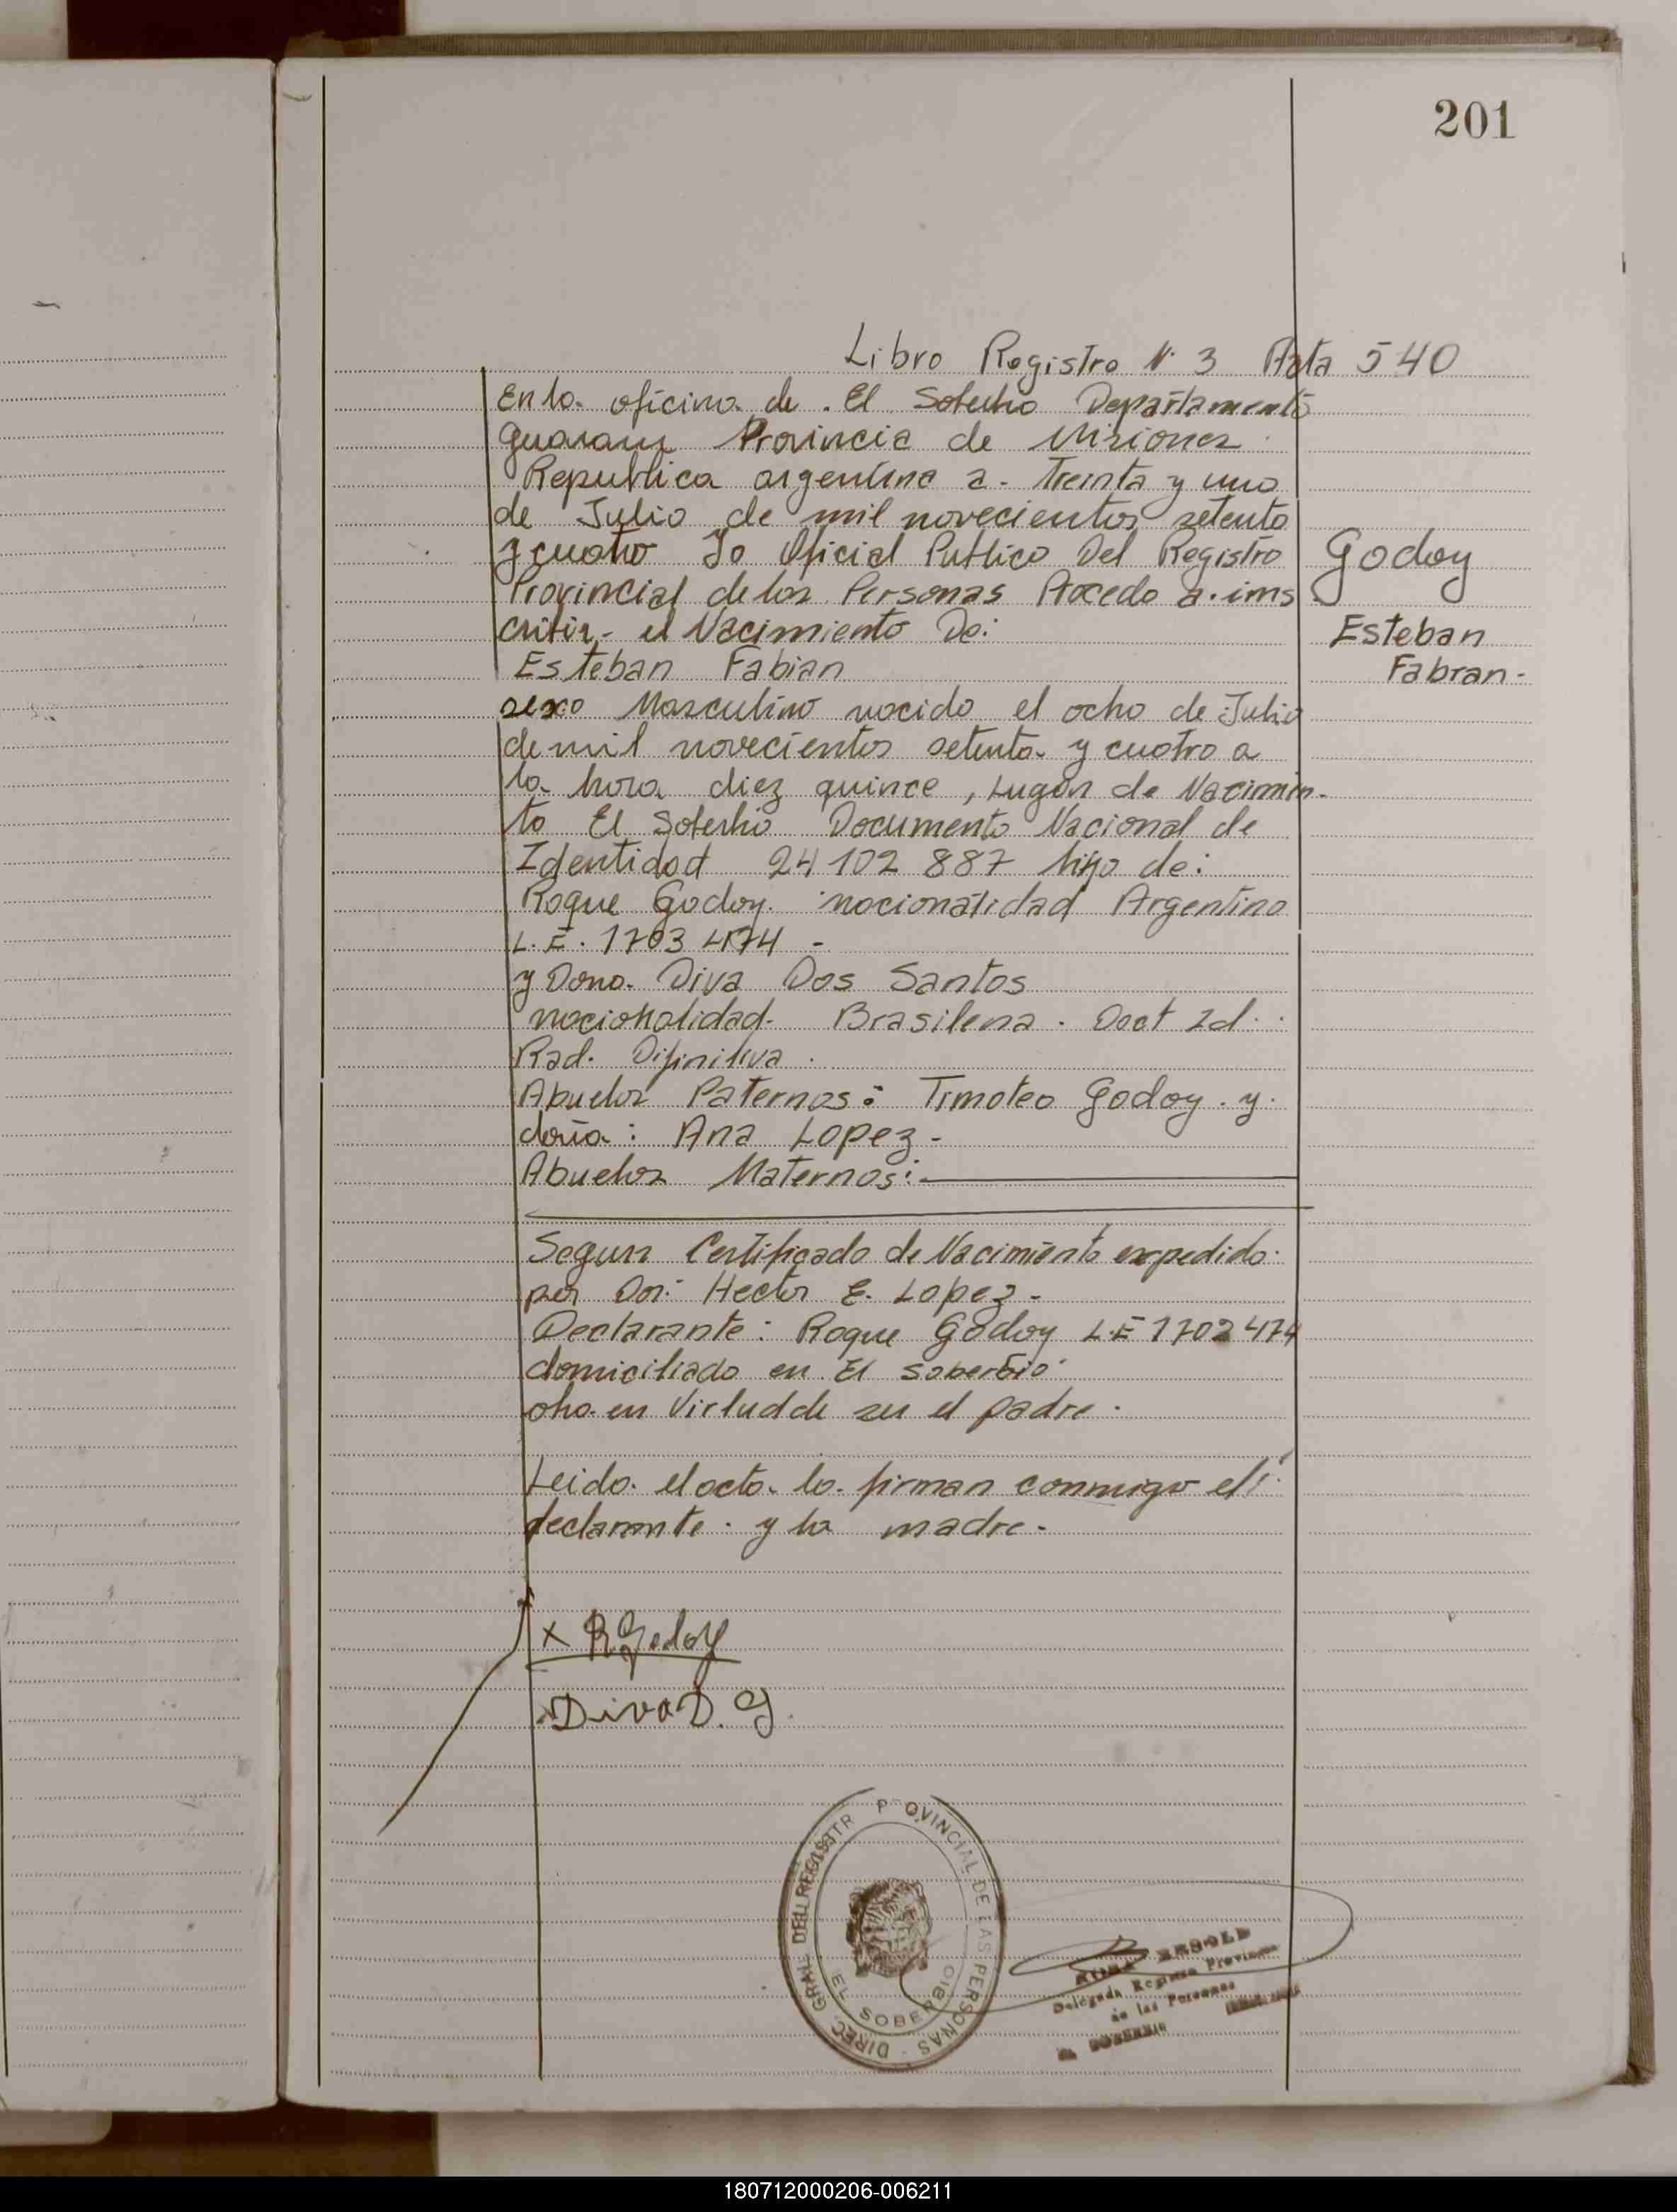 201
Libro Registro N. 3 Acta 540
En la oficina de . El Soberbio Departamento
Guarany Provincia de Misiones
Republica argentina a - Treinta y uno
de Julio de mil novecientos setenta
y cuatro Yo Oficial Publico Del Registro
Provincial de las Personas Procedo a . ims
cribir - el Nacimiento De:
Esteban Fabian
Godoy
Esteban
Fabian -
sexo Masculino nacido el ocho de Julio
de mil novecientos setenta y cuatro a
la hora diez quince , Lugar de Nacimien-
to El Soberbio Documento Nacional de
Identidad 24 102 887 hijo de:
Roque Godoy. nacionalidad Argentino
L. E. 1703 474 -
y Dona. Diva Dos Santos
nacionalidad. Brasilena . Doct Id.
Rad. Difinitiva .
Abuelos Paternos: Timoteo Godoy . y.
doña: Ana Lopez -
Abuelos Maternos:
Segun Certificado de Nacimiento expedido.
por Dor. Hector E. Lopez -
Declarante: Roque Godoy L.E 1702 474
domiciliado en El Soberbio
obra en Virtud de ser el padre .
Leido. el acta. lo. firman conmigo el
declarante . y la madre -
x R Godoy
x Diva D. G.
DIREC. GRAL. DEL REGISTR P OVINCIAL DE LAS PERSONAS
EL SOBERBIO
Delegada Registro Provincial
de las Personas
EL SOBERBIO
180712000206-006211